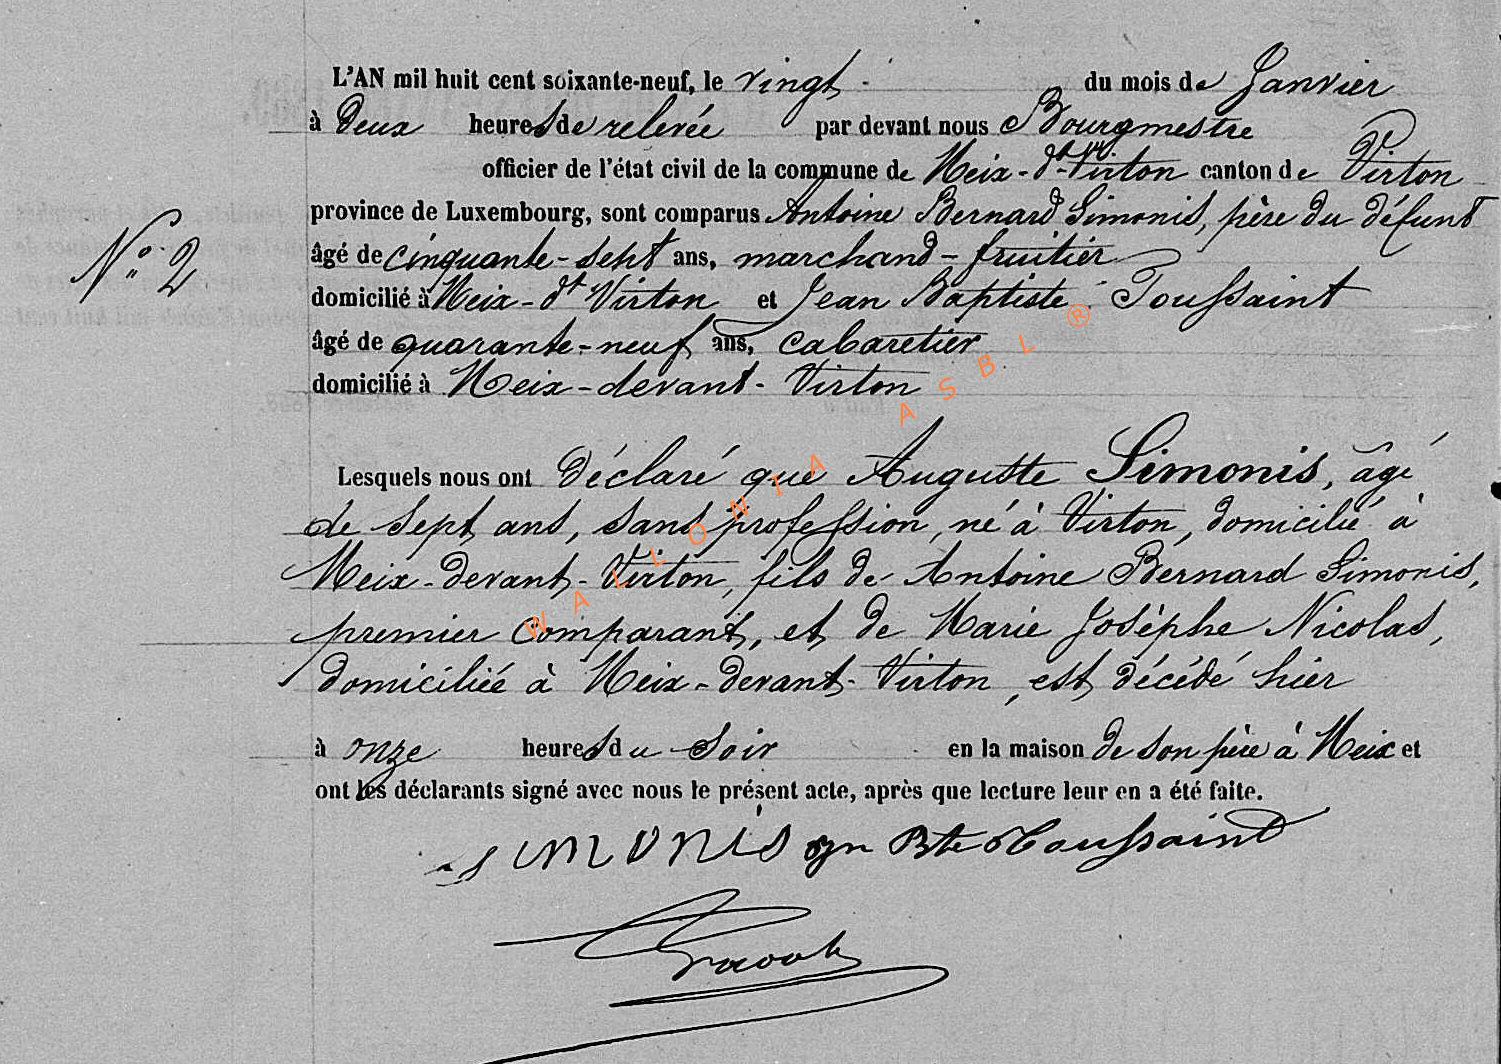 L'AN mil huit cent soixante-neuf, le vingt du mois de Janvier
à Deux heures de relevée par devant nous Bourgmestre
officier de l'état civil de la commune de Meix-dt-Virton canton de Virton
province de Luxembourg, sont comparus Antoine Bernard Simonis, père du défunt
N° 2
âgé de cinquante-sept ans, marchand-fruitier
domicilié à Meix-dt Virton et Jean Baptiste Toussaint
âgé de quarante-neuf ans, cabaretier
domicilié à Meix-devant-Virton
Lesquels nous ont Déclaré que Auguste Simonis, âgé
de sept ans, sans profession, né à Virton, domicilié à
Meix-devant-Virton, fils de Antoine Bernard Simonis,
premier comparant, et de Marie Josèphe Nicolas,
domiciliée à Meix-devant-Virton, est décédé hier
à onze heures du soir en la maison de son père à Meix et
ont les déclarants signé avec nous le présent acte, après que lecture leur en a été faite.
simonis Bte Toussaint
WALLONIA ASBL ®